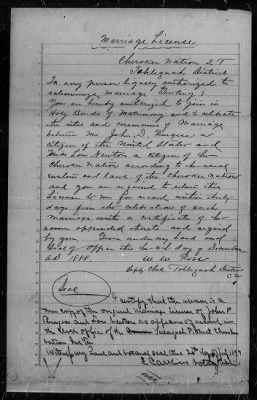 Marriage License
Cherokee Nation I T
Tahlequah District
To any person legally authorized to
solemnize marriage Greeting:
You are hereby authorized to join in
Holy Bonds of Matrimony and to celebrate
the rites and ceremony of Marriage
between Mr John D. Burgess a
citizen of the United States and
Miss Lou Newton a citizen of the
Cherokee Nation according to the usual
custom and laws of the Cherokee Nation
and you are required to return this
License to me for record within thirty
days from the celebration of such
marriage with a certificate of the
same appended thereto and signed
by you. Given under my hand and
Seal of office this the day of December
AD 1888.
W. W. Ross
Clerk Tahlequah District
C N
Seal
I certify that the above is a
true copy of the original License issued of John
Burgess and Lou Newton as appears of record in
the Clerk office of the Tahlequah District Cherokee
Nation Ind Ty
Witness my hand and notarial seal this
Notary Public